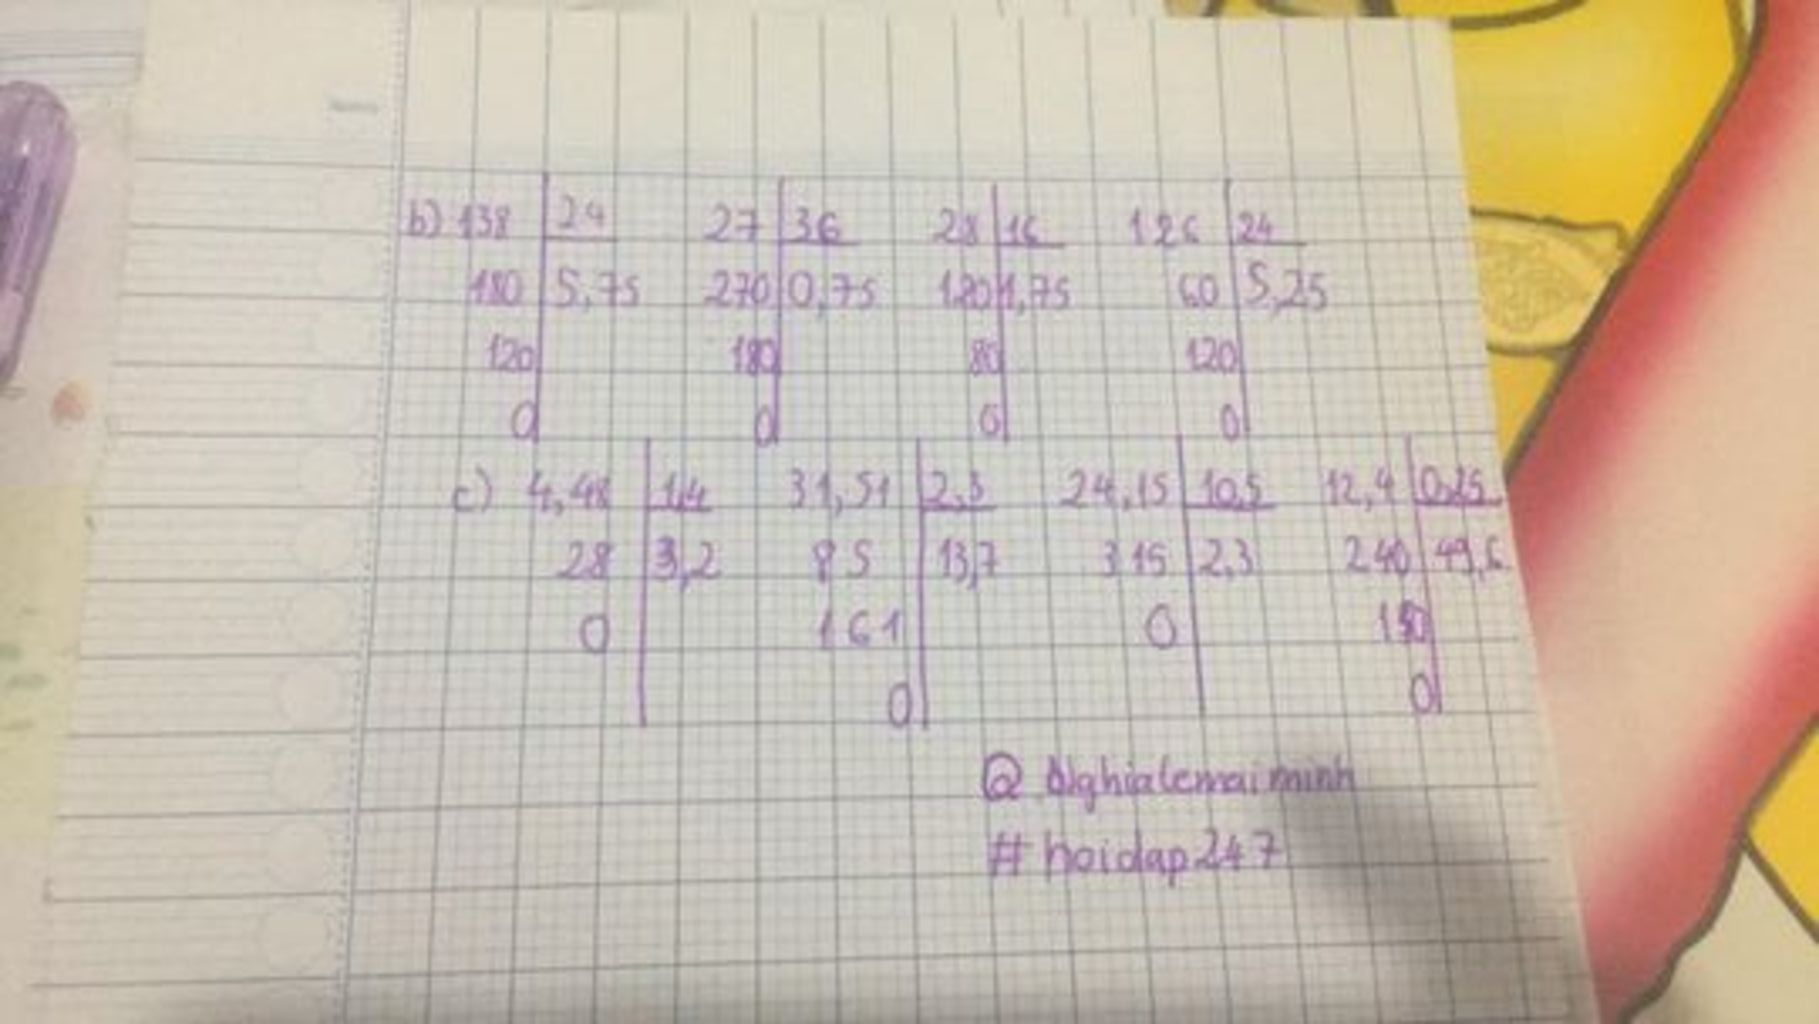 b) 138 24 27 36 28 16 126 24
180 5,75 270 0,75 120 1,75 60 5,25
120 180 80 120
0 0 0 0
c) 4,48 1,4 31,51 2,3 24,15 10,5 12,4 0,25
28 3,2 85 13,7 315 2,3 240 49,6
0 161 0 150
0 0
@ Nghialemaiminh
# hoidap247